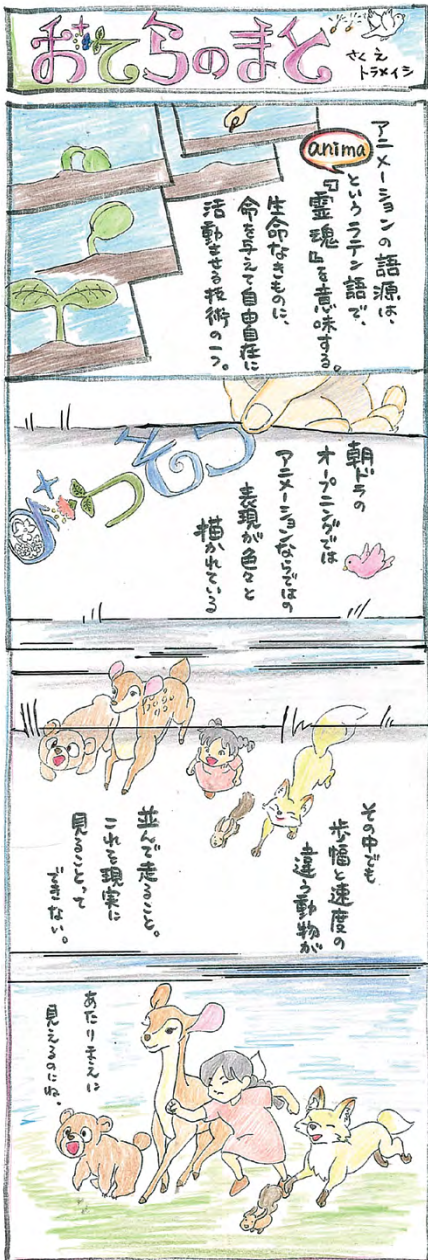 おてらのまど
さくえ
トラメイシ
アニメーションの語源は、
anima
というラテン語で、
『霊魂』を意味する。
生命なきものに、
命を与えて自由自在に
活動させる技術の一つ。
なつぞら
朝ドラの
オープニングでは
アニメーションならではの
表現が色々と
描かれている
その中でも
歩幅と速度の
違う動物が
並んで走ること。
これを現実に
見ることって
できない。
あたりまえに
見えるのにね。